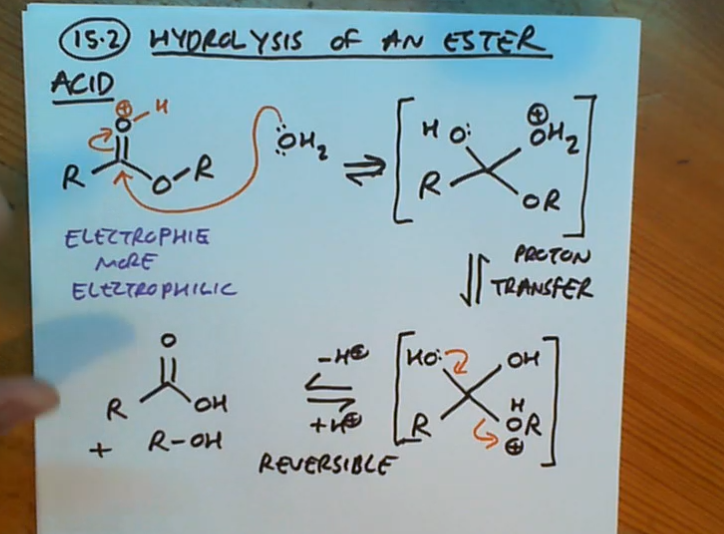 15.2 HYDROLYSIS OF AN ESTER
ACID
⊕
O H
R O R
:ÖH2
⇌
HO: ⊕
OH2
R OR
ELECTROPHIE
MORE
ELECTROPHILIC
PROTON
TRANSFER
O
R OH
+ R-OH
-H⊕
+H⊕
REVERSIBLE
HO: OH
R H
OR
⊕